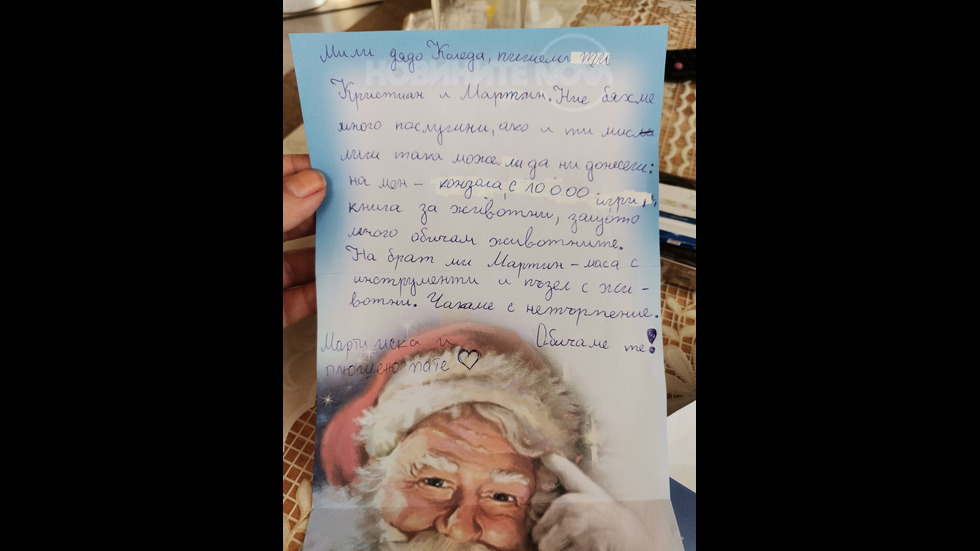 Мили дядо Коледа, пишем ти
Кристиан и Мартин. Ние бяхме
много послушни, ако и ти мис
лиш така може ли да ни донесеш:
на мен - конзола с 10 000 игри,
книга за животни, защото
много обичам животните.
На брат ми Мартин - маса с
инструменти и пъзел с жи-
вотни. Чакаме с нетърпение.
Обичаме те!
Марти иска и
плюшено пате ♡
НОВИНИТЕ NOVA